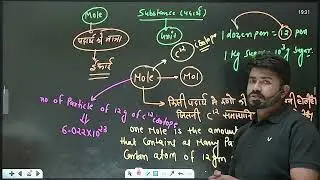 19:31
Mole
Substance (पदार्थ)
पदार्थ की मात्रा
Unit
C¹² isotope
1 dozen pen = 12 pen
1 kg sugar = 10³ g sugar
इकाई
Mole
Mol
no of Particle of 12 g of C¹² isotope
6.022X10²³
किसी पदार्थ के
जितनी C¹²
one Mole is the amount
that contains as Many Pa
Carbon atom of 12 gm